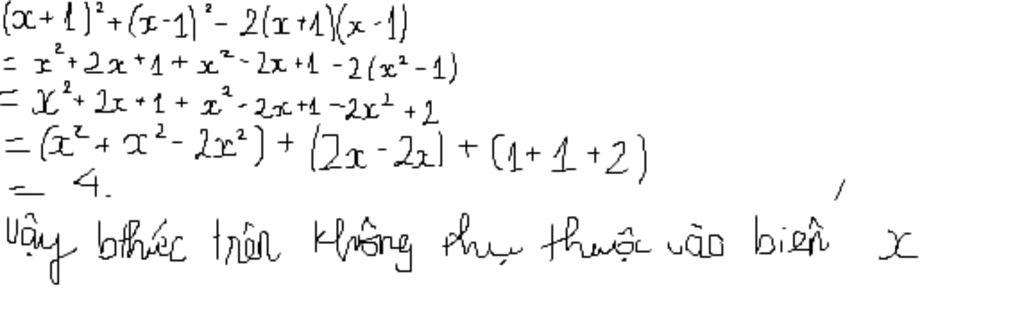 (x+1)²+(x-1)²- 2(x+1)(x-1)
= x²+2x+1+x²-2x+1-2(x²-1)
= x²+2x+1+x²-2x+1-2x²+2
= (x²+x²-2x²)+(2x-2x)+(1+1+2)
= 4.
Vậy bthức trên không phụ thuộc vào biến x